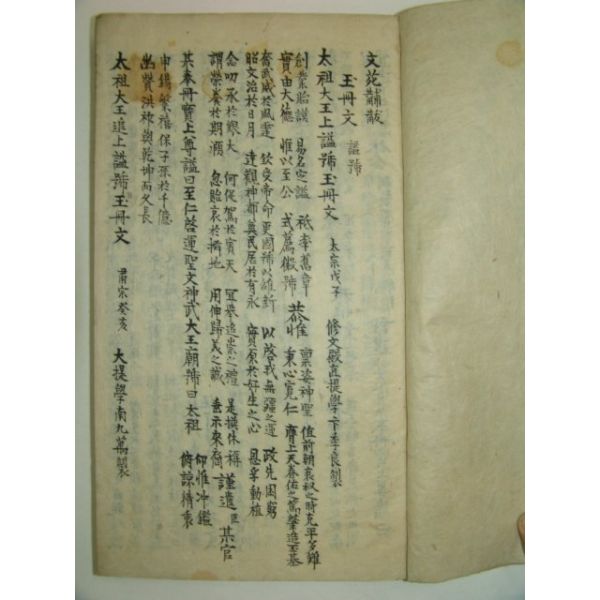 文苑黼黻
玉冊文 謚號
太祖大王上謚號玉冊文 太宗戊子 修文殿直提學卞季良製
創業貽謨 易名定謚 祗率舊章 稟姿神聖 值前朝衰叔之時克平多難
實由大德 惟以至公 式薦徽號 恭惟 秉心寬仁 膺上天眷佑之篤肇造丕基
奮武威於風霆 欽受帝命更國號以維新 以啓我無疆之運 政先困窮
昭文治於日月 達觀神都奠民居於有永 實原於好生之心 恩孚動植
念叨承於艱大 何促駕於賓天 宜擧追崇之禮 是攄休稱 謹遣臣某官
謂榮養於期頤 忽貽哀於擗地 用伸歸美之誠 垂示來裔
其奉冊寶上尊謚曰至仁啓運聖文神武大王廟號曰太祖 仰惟冲鑑 俯諒精衷
申錫繁禧保子孫於千億
幽贊洪祚與乾坤而久長
太祖大王追上謚號玉冊文 肅宗癸亥 大提學南九萬製